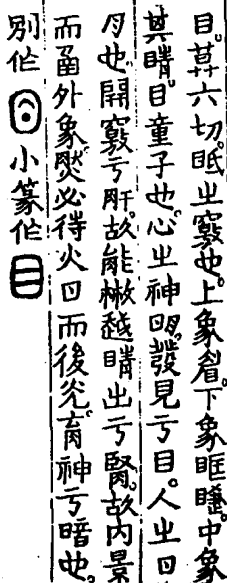 目。莫六切。眂㞢竅也。上象眉。下象眶睫。中象
其睛。目童子也。心㞢神明。發見亏目。人㞢日
月也。開竅亏肝。故能㪚越。睛出亏腎。故内景
而外象。然必待火日而後光。育神亏暗也。
別作小篆作目